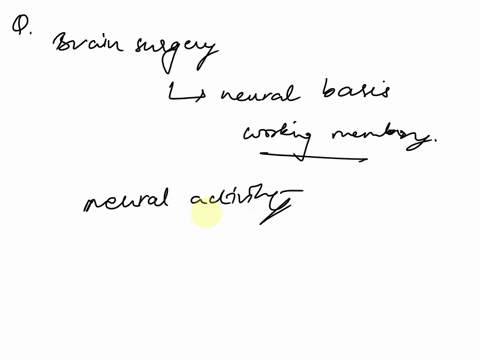 Q.
Brain surgery
↳ neural basis
working memory.
neural activity